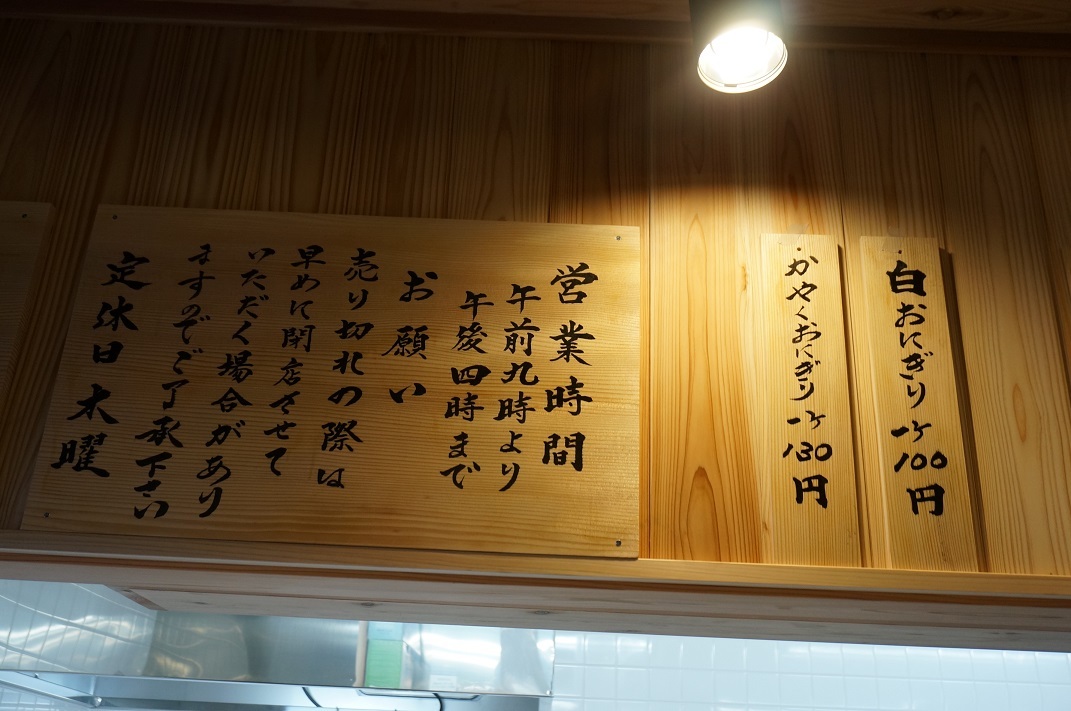 白おにぎり 一ヶ 100円
かやくおにぎり 一ヶ 130円
営業時間
午前九時より
午後四時まで
お願い
売り切れの際は
早めに閉店させて
いただく場合があり
ますのでご了承下さい
定休日 木曜